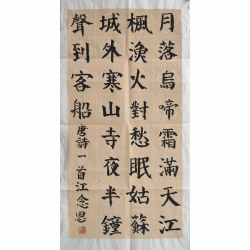 月落烏啼霜滿天江
楓漁火對愁眠姑蘇
城外寒山寺夜半鐘
聲到客船
唐詩一首江念恩